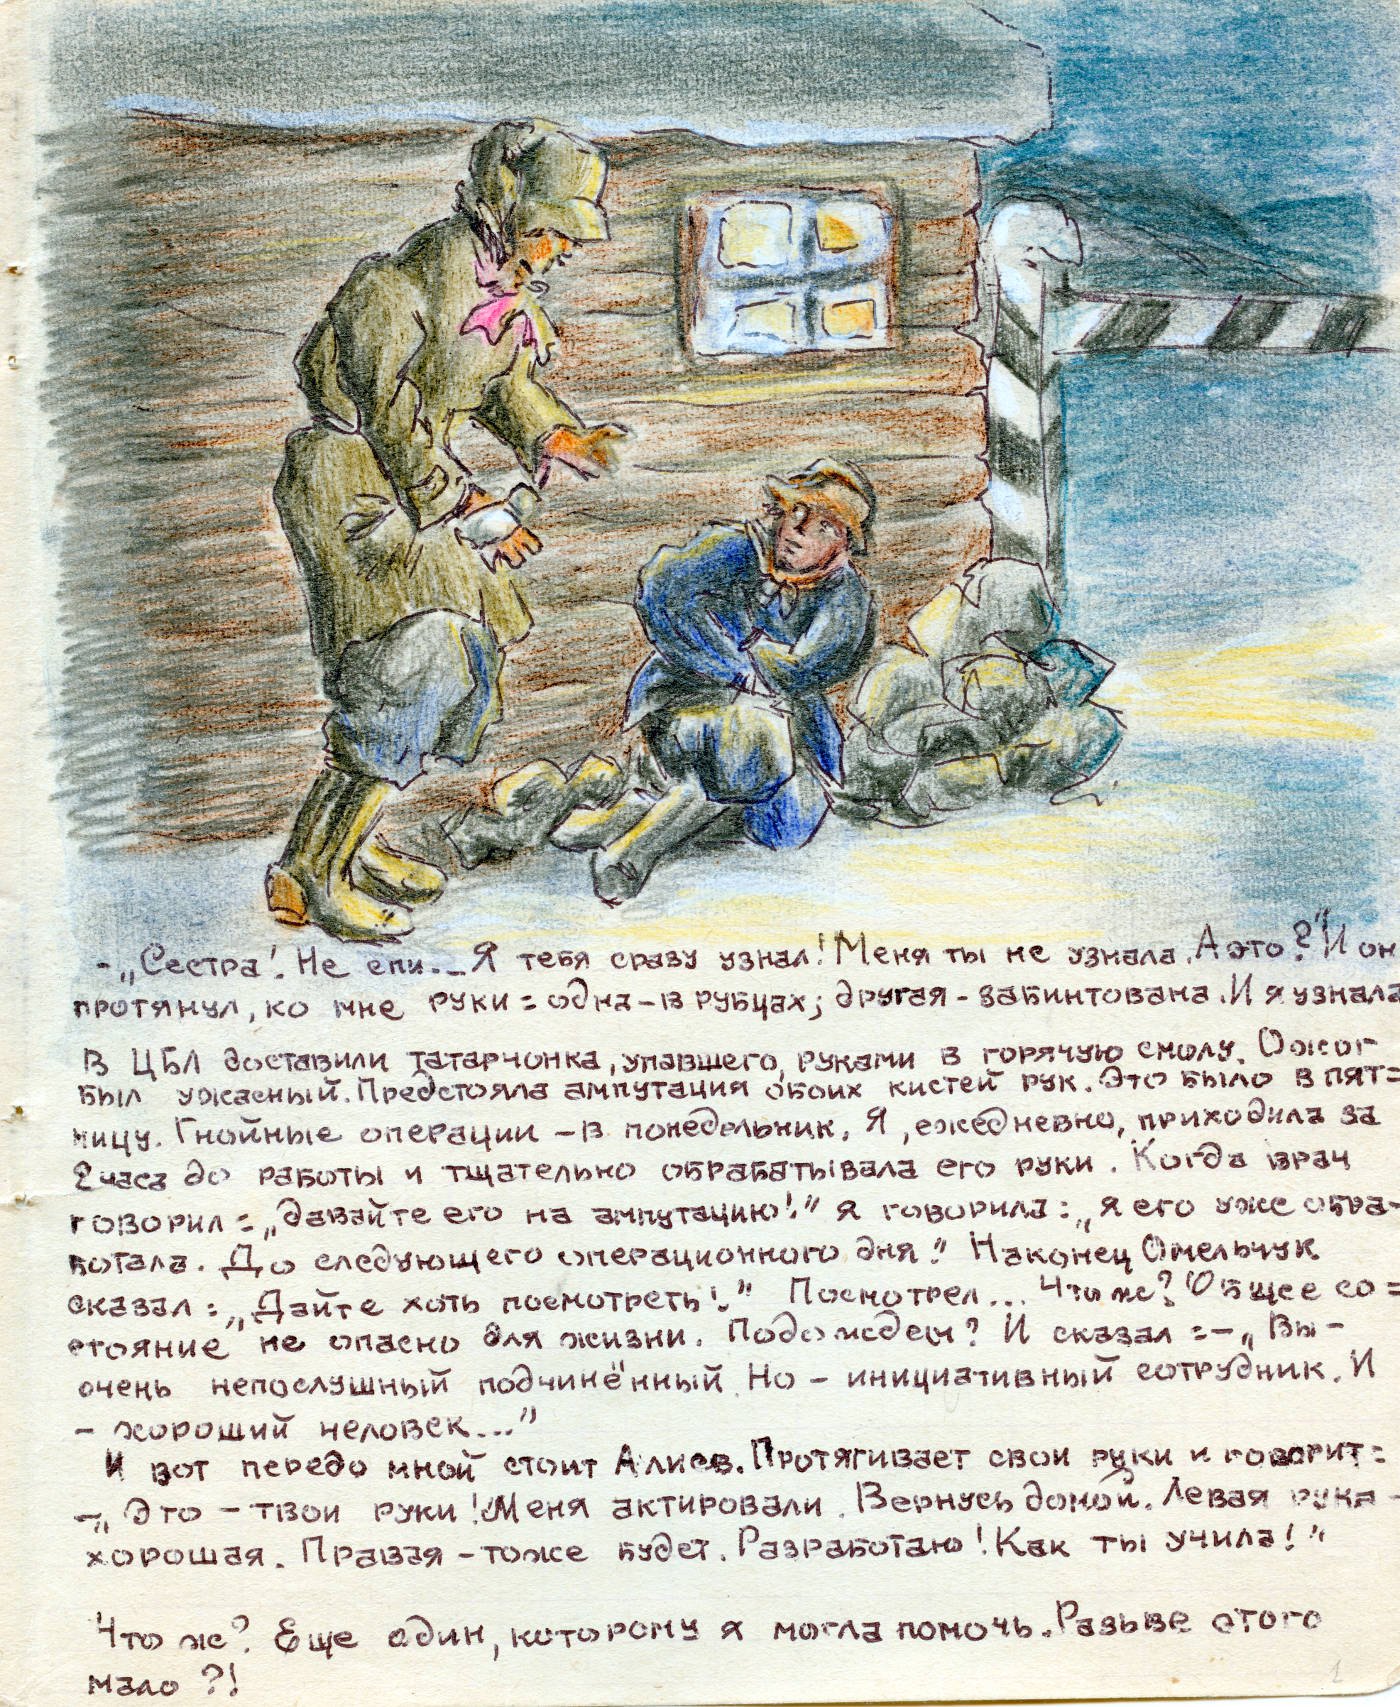 -„Сестра! Не спи... Я тебя сразу узнал! Меня ты не узнала. А это?" И он
протянул, ко мне руки = одна – в рубцах; другая – забинтована. И я узнала
В ЦБЛ доставили татарчонка, упавшего, руками в горячую смолу. Ожог
был ужасный. Предстояла ампутация обоих кистей рук. Это было в пят=
ницу. Гнойные операции – в понедельник. Я, ежедневно, приходила за
2 часа до работы и тщательно обрабатывала его руки. Когда врач
говорил = „давайте его на ампутацию!" я говорила: „я его уже обра-
ботала. До следующего операционного дня." Наконец Омельчук
сказал: „Дайте хоть посмотреть!" Посмотрел... Что ж? Общее со=
стояние не опасно для жизни. Подождем? И сказал = – „Вы –
очень непослушный подчинённый. Но – инициативный сотрудник. И
– хороший человек..."
И вот передо мной стоит Алиев. Протягивает свои руки и говорит =
–„Это – твои руки! Меня актировали. Вернусь домой. Левая рука –
хорошая. Правая – тоже будет. Разработаю! Как ты учила!"
Что ж? Еще один, которому я могла помочь. Разьве этого
мало?!
1